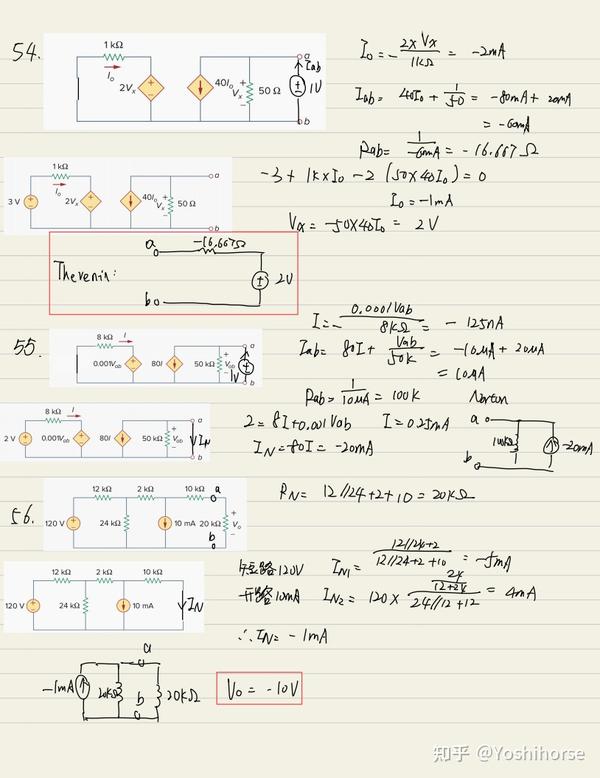 54.
1 kΩ
I₀
2Vₓ
40I₀
Vₓ
50 Ω
a
Iab
1V
b
I₀ = - 2×Vx / 1kΩ = -2mA
Iab = 40I₀ + 1/50 = -80mA + 20mA
= -60mA
Rab = 1 / -60mA = -16.667Ω
1 kΩ
3 V
I₀
2Vₓ
40I₀
Vₓ
50 Ω
a
b
-3 + 1k×I₀ - 2(50×40I₀) = 0
I₀ = -1mA
Vx = -50×40I₀ = 2V
Thevenin:
a
-16.667Ω
2V
b
55.
8 kΩ
I
0.001Vab
80I
50 kΩ
Vab
1V
a
b
I = - 0.0001Vab / 8kΩ = -125nA
Iab = 80I + Vab / 50k = -10μA + 20μA
= 10μA
Rab = 1 / 10μA = 100k
8 kΩ
I
2 V
0.001Vab
80I
50 kΩ
Vab
a
b
IN
2 = 8I + 0.001Vab I = 0.25mA
IN = -80I = -20mA
Norton
a
100kΩ
-20mA
b
56.
12 kΩ
2 kΩ
10 kΩ
a
120 V
24 kΩ
10 mA
20 kΩ
V₀
b
RN = 12//24+2+10 = 20kΩ
12 kΩ
2 kΩ
10 kΩ
120 V
24 kΩ
10 mA
IN
短路120V IN1 = 12//24+2 / 12//24+2+10 = -5mA
开路10mA IN2 = 120 × 24/12+24 / 24//12+12 = 4mA
∴ IN = -1mA
a
-1mA
20kΩ
b
20kΩ
V₀ = -10V
知乎 @Yoshihorse